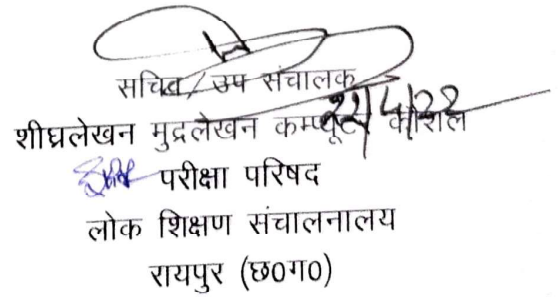 सचिव/उप संचालक
शीघ्रलेखन मुद्रलेखन कम्प्यूटर कौशल
परीक्षा परिषद
लोक शिक्षण संचालनालय
रायपुर (छ0ग0)